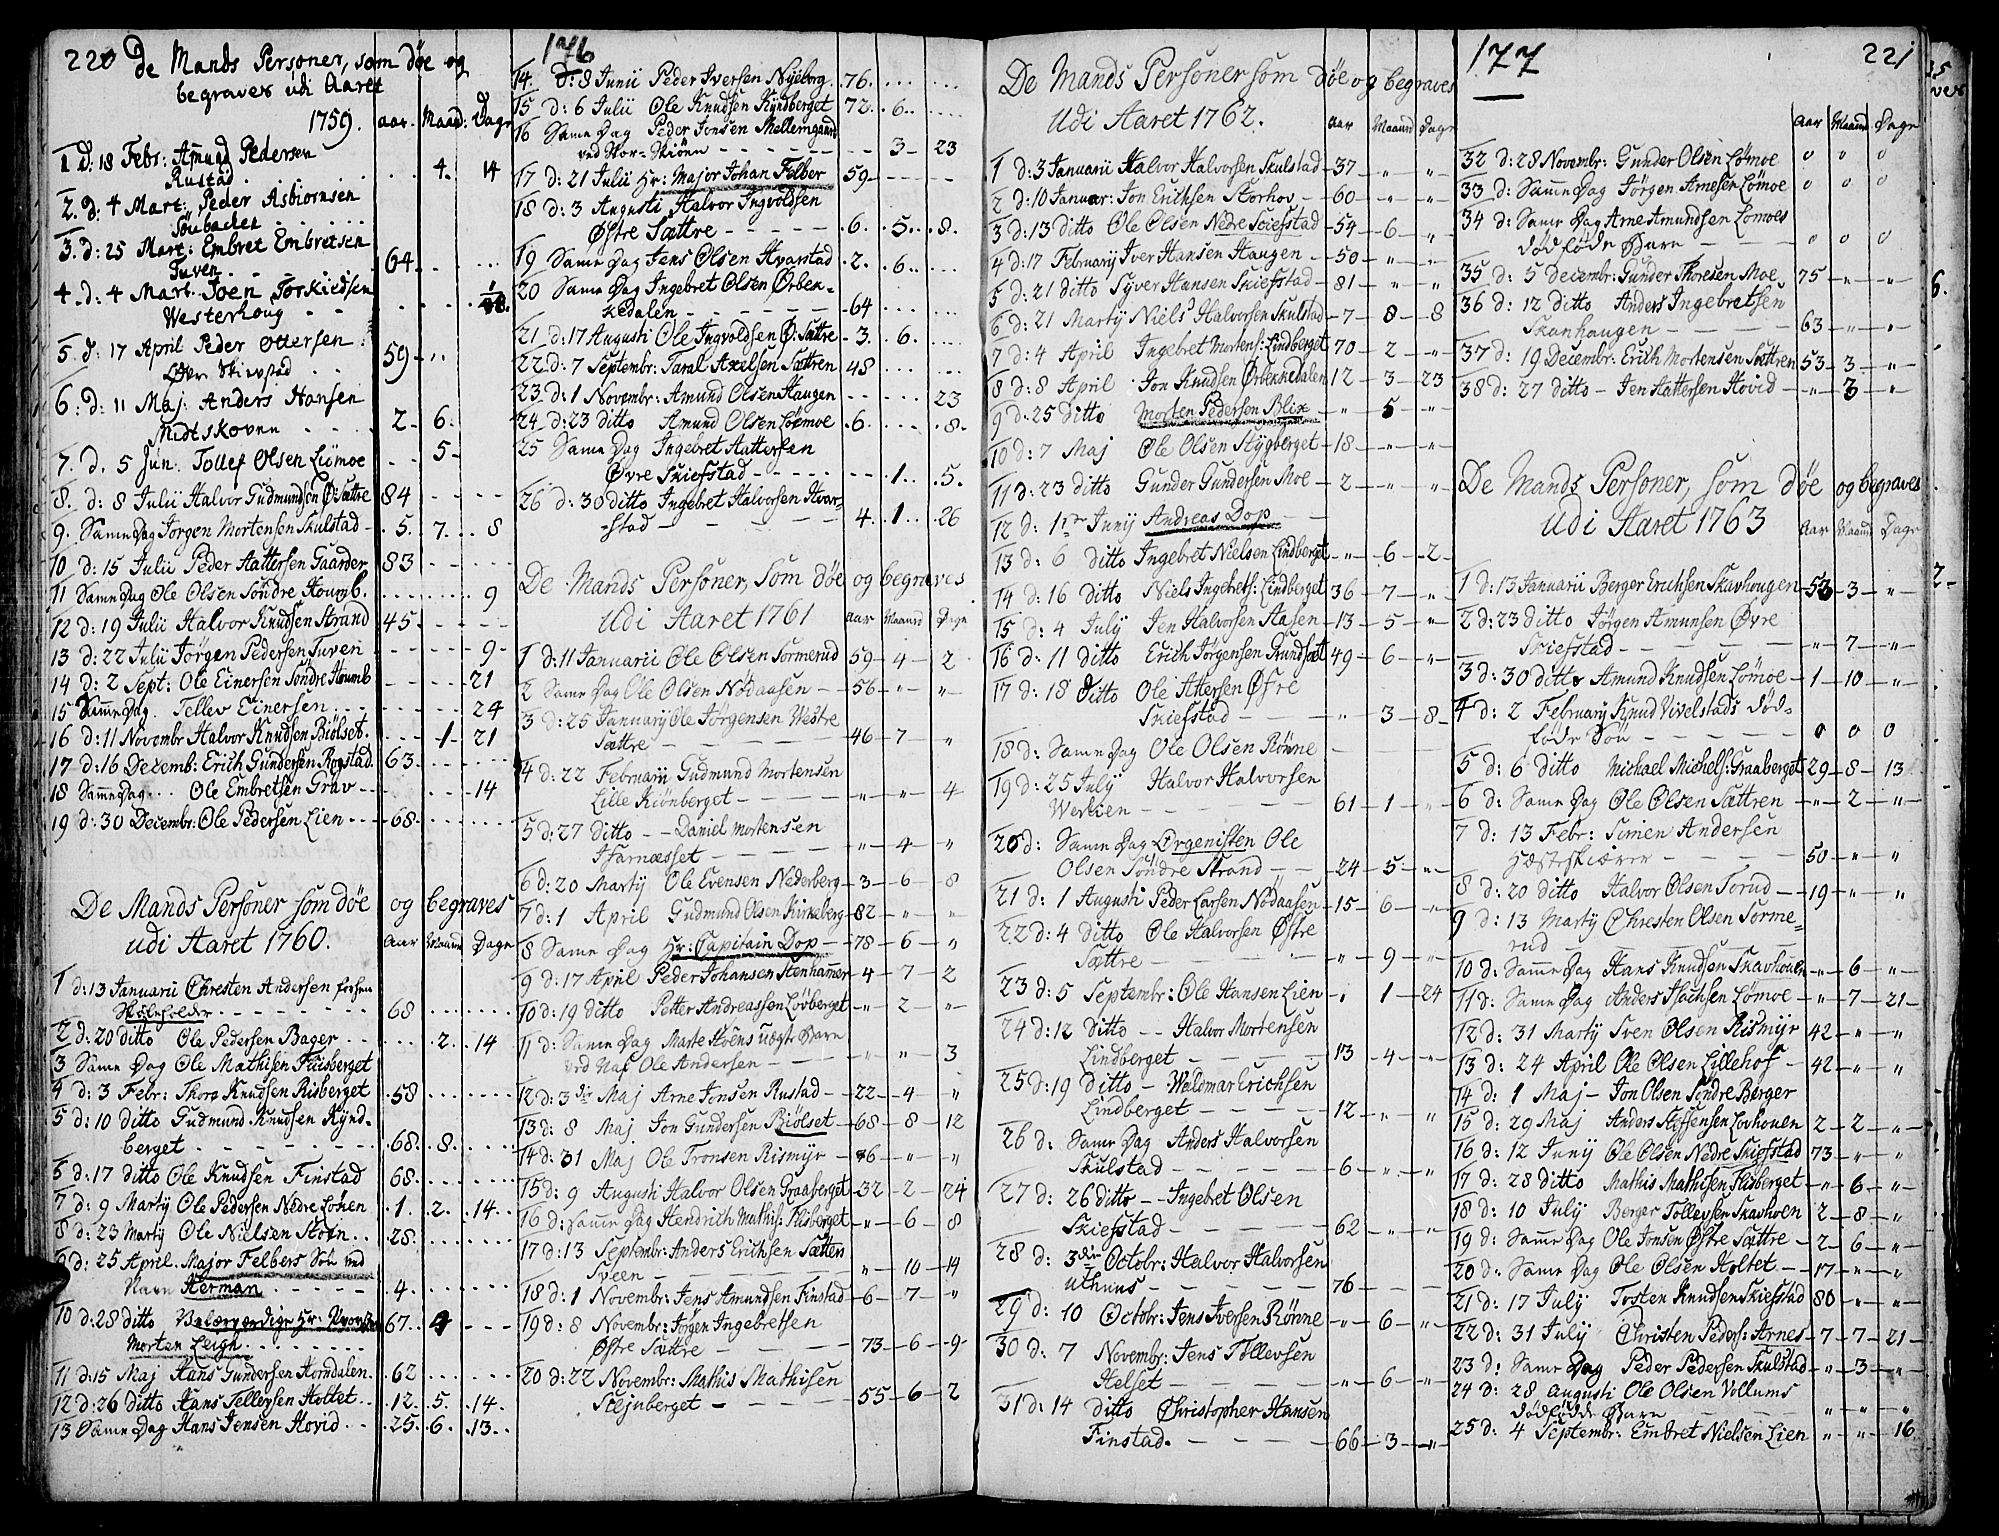 220 De Mands Personer, som döe og
begraves udi Aaret
1759. aar. Maad: Dage
1 d: 18 Febr: Amund Pedersen
Rustad . . . 4. 14
2. d: 4 Mart: Peder Asbiornsen
3. d: 25 Mart: Embret Embretsen
Tuven . . 64. . . .
4. d: 4 Mart. Joen Torkieldsen
Westerhoug
5. d: 17 April Peder Ottersen
Øvr Skiefstad . . 59 . .
6. d: 11 Maj. Anders Hansen
Midtskoven . . . 2. 6.
7. d. 5 Jun. Tollef Olsen Lömoe . . 5.
8. d: 8 Julii Halvor Gudmundsen Ø: Sættre 84 - - -
9. Samme Dag Jörgen Mortensen Skulstad - 5. 7. . . 8
10 d: 15 Julii Peder Hattersen Gaarder 83 - - -
11 Samme Dag Ole Olsen Söndre Houmb. . . . 9
12 d: 19 Julii Halvor Knudsen Strand 45 - - -
13 d: 22 Julii Jörgen Pedersen Tuven . . . 9 -
14 d: 2 Sept: Ole Einersen Söndre Houmb . . . 21
15 Samme Dag. Tellev Einersen . . . 24
16 d: 11 Novembr Halvor Knudsen Biölset . . 1 - 21
17 d: 16 Decemb: Erich Gundersen Rogstad. 63. . . .
18 Samme Dag . . . Ole Embretsen Grav - - . . . 14
19 d: 30 Decembr: Ole Pedersen Lien . . . 68. . . .
De Mands Personer som döe og begraves
udi Aaret 1760. Aar Maaned Dage
1 d: 13 Januarii Chresten Andersen forhen
Skoleholder . . . 68 . . .
2 d: 20 ditto Ole Pedersen Bager . . . . 2. 14
3 Samme Dag Ole Mathisen Flisberget
4 d: 3 Febr: Thore Knudsen Risberget . 58 . . .
5 d: 10 ditto Gudmund Knudsen Kynd-
berget . . . 68. 8. . . .
6 d: 17 ditto Ole Knudsen Finstad 68. . . .
7 d: 9 Martij Ole Pedersen Nedre Löken . 1. 2. . 14 . .
8 d: 23 Martij Ole Nielsen Stoen . . . 28. . . .
9 d: 25 April. Major Felbers Sön ved
Navn Herman . . . 4. . . .
10 d: 28 ditto Velærværdige Hr: Provst 67. 4 - - -
Morten Leigh . . .
11 d: 15 Maj Hans Gundersen Horndalen . 62 . . .
12 d: 26 ditto Hans Tellevsen Holtet . . 12. 5. . 14.
13 Samme Dag Hans Jensen Hovid . . . 25. 6. . 13. .
176
14. d: 8 Junii Peder Iversen Nyeborg . 76. . . .
15 d: 6 Julii Ole Knudsen Kyndberget 72. . 6. . .
16 Samme Dag Peder Jonsen Mellemgaard
ved Stor-Skiön - - - . 3 - 23
17 d: 21 Julii Hr: Major Johan Felber 59 - - -
18 d: 3 Augusti Halvor Ingvoldsen
Østre Sættre - - - . 6. . 5. . 8.
19 Samme Dag Jens Olsen Hvarstad . 2. . 6. . . .
20 Samme Dag Ingebret Olsen Ørbek-
kedalen - - - . 64 . . .
21 d: 17 Augusti Ole Ingvoldsen Ø. Sættre . 3. . 6. . .
22 d: 7 Septembr: Taral Axelsen Sættren 48 . . .
23. d: 1 Novembr: Amund Olsen Haugen - - - 23
24 d: 23 ditto Amund Olsen Lömoe . 6. . . . . 8.
25 Samme Dag Ingebret Hattersen
Øvre Skiefstad - - - . . 1. . 5.
26 d: 30 ditto Ingebret Halvorsen Hvar-
stad - - - 4. . 1. . 26
De Mands Personer, som döe og begraves
udi Aaret 1761 Aar Maaned Dage
1 d: 11 Januarii Ole Olsen Sormerud 59 - 4 - 2
2 Samme Dag Ole Olsen Nödaasen - - 56 - „ - „
3 d: 25 Januarij Ole Jörgensen Westre
Sættre - - - 46 - 7 - „
4 d: 22 Februarii Gudmund Mortensen
Lille Kiönberget - - - „ - „ - 4
5 d: 27 ditto - - Daniel Mortensen
Harnæsset - - - „ - 4 - „
6 d: 20 Martij Ole Evensen Nederberg - 3 - 6 - 8
7 d: 1 April Gudmund Olsen Kirkeberg - 82 - „ - „
8 Samme Dag Hr: Capitain Dop - - 78 - 6 - „
9 d: 17 April Peder Johansen Stenhammer - 4 - 7 - 2
10 d: 19 ditto Petter Andreassen Löberget - „ - 2 - „
11 d: Samme Dag Marte Hvens uægte Barn
ved Naf Ole Andersen - - „ - „ - 3
12 d: 3die Maj Arne Jonsen Rustad - - 22 - 4 - „
13 d: 8 Maj Jon Gundersen Biölset - 68 - 8 - 12
14 d: 31 Maj Ole Tronsen Rismyr - - 76 - „ - „
15 d: 9 Augusti Halvor Olsen Graaberget - 32 - 2 - 24
16 d: Samme Dag Hendrich Mathis: Flisberget - „ - 6 - 8
17 d: 13 Septembr: Anders Erichsen Sætter
Sveen - - - „ - 10 - 14
18 d: 1 Novembr: Jens Amundsen Finstad - 6 - 7 - „
19 d: 8 Novembr: Jörgen Ingebretsen
Østre Sættre - - - 73 - 6 - 9 -
20 d: 22 Novembr: Mathis Mathisen
Seljuberget - - - 55 - 6 - 2
De Mands Personer som döe og begraves
Udi Aaret 1762. Aar Maaned Dage
1 d: 3 Januarii Halvor Halvorsen Skulstad - 37 - „ - „
2 d: 10 Januar: Jon Erichsen Storhov - 60 - „ - „
3 d: 13 ditto Ole Olsen Nedre Skiefstad - 54 - 6 - „
4 d: 17 Februarij Iver Hansen Haugen - 50 - „ - „
5 d: 21 ditto Syver Hansen Skiefstad - 81 - „ - „
6 d: 21 Martij Niels Halvorsen Skulstad - 7 - 8 - 8
7 d: 4 April Ingebret Mortens: Lindberget 70 - 2 - „
8 d: 8 April Jon Knudsen Ørbekkedalen 12 - 3 - 23
9 d: 25 ditto Morten Pedersen Blix - „ - 5 - „
10 d: 7 Maj Ole Olsen Stygberget - 18 - „ - „
11 d: 23 ditto Gunder Gundersen Moe - 2 - „ - „
12 d: 1ste Junij Andreas Dop - -
13 d: 6 ditto Ingebret Nielsen Lindberget - „ - 6 - 2 -
14 d: 16 ditto Niels Ingebrets: Lindberget 36 - 7 - „
15 d: 4 July Jen Halvorsen Aasen - 13 - 5 - „
16 d: 11 ditto Erich Jörgensen Grundsæt 49 - 6 - „
17 d: 18 ditto Ole Attersen Øfre
Skiefstad - - - „ - 3 - 8 -
18 d: Samme Dag Ole Olsen Rönne - - - -
19 d: 25 July Halvor Halvorsen
Werkien - - - 61 - 1 - „
20 d: Samme Dag Orgenisten Ole
Olsen Söndre Strand - - 24 - 5 - „
21 d: 1 Augusti Peder Larsen Nödaasen - 15 - 6 - „
22 d: 4 ditto Ole Halvorsen Østre
Sættre - - - „ - 9 - „
23 d: 5 Septembr: Ole Hansen Lien - „ - 1 - 24
24 d: 12 ditto - - Halvor Mortensen
Lindberget - - - 13 - 4 - „
25 d: 19 ditto - Woldmar Erichsen
Lindberget - - - 12 - „ - „
26 d: Samme Dag Anders Halvorsen
Skulstad - - - 6 - „ - „
27 d: 26 ditto - - Ingebret Olsen
Skiefstad - - - 62 - „ - „
28 d: 3die Octobr: Halvor Halvorsen
Uthuus - - - 76 - - -
29 d: 10 Octobr: Jens Iversen Rönne - „ - 6 - „
30 d: 7 Novembr: Jens Tollevsen
Helset - - - „ - 6 - „
31 d: 14 ditto Christopher Hansen
Finstad. - - - 66 - 3 - „
177 221
Aar Maaned Dage
32 d: 28 Novembr: Gunder Olsen Lömoe 0 0 0
33 d: Samme Dag Jörgen Arnesen Lömoe 0 0 0
34 d: Samme Dag Arne Amundsen Lömoes
dödföde Barn - - 0 0 0
35 d: 5 Decembr: Gunder Thoresen Moe 75 - „ - „
36 d: 12 ditto Anders Ingebretsen
Skanhaugen - - - 63 - „ - „
37 d: 19 Decembr: Erich Mortensen Sættren 53 - 3 - „
38 d: 27 ditto - Jen Hattersen Hovid - „ - 3 - „
De Mands Personer, som döe og begraves
Udi Aaret 1763 Aar Maaned Dage
1 d: 13 Januarii Berger Erichsen Skavhougen - 53 - 3 - „
2 d: 23 ditto Jörgen Amunsen Øvre
Skiefstad - - - „ - 7 - „
3 d: 30 ditto Amund Knudsen Lömoe - 1 - 10 - „
4 d: 2 Februarij Knud Vivelstads död-
föde Sön - - - 0 0 0
5 d: 6 ditto Michael Michels: Graaberget 29 - 8 - 13
6 d: Samme Dag Ole Olsen Sættren - „ - 2 - „
7 d: 13 Febr: Simen Andersen
Hæsteskiærer - - - 50 - „ - „
8 d: 20 ditto Halvor Olsen Torud - - 19 - „ - „
9 d: 13 Martij Chresten Olsen Sorme-
rud - - -
10 d: Samme Dag Hans Knudsen Skavhouen - „ - 6 - „
11 d: Samme Dag Anders Isachsen Lömoe - „ - 7 - 21 -
12 d: 31 Martij Sven Olsen Rismyr 42 - „ - „
13 d: 24 April Ole Olsen Lillehof - 42 - „ - „
14 d: 1 Maj - Jon Olsen Söndre Berger
15 d: 29 Maj Anders Steffensen Lovhouen 2 - 2 - „
16 d: 12 Junij Ole Olsen Nedre Skiefstad 73 - „ - „
17 d: 28 ditto Mathis Mathisen Flisberget - „ - 6 - „
18 d: 10 July Berger Tollevsen Skavhoen 2 - 8 - „
19 d: Samme Dag Ole Jonsen Østre Sættre - 2 - 6 - „
20 d: Samme Dag Ole Olsen Holtet - - 17 - „ - „
21 d: 17 July Tosten Knudsen Skiefstad 80 - „ - „
22 d: 31 July Christen Peders: Arnes - 7 - 7 - 21 -
23 d: Samme Dag Peder Pedersen Skulstad - „ - 3 - „
24 d: 28 Augusti Ole Olsen Vollums
dödfödde Barn - - - „ „ „
25 d: 4 Septembr: Embret Nielsen Lien - „ - „ - 16